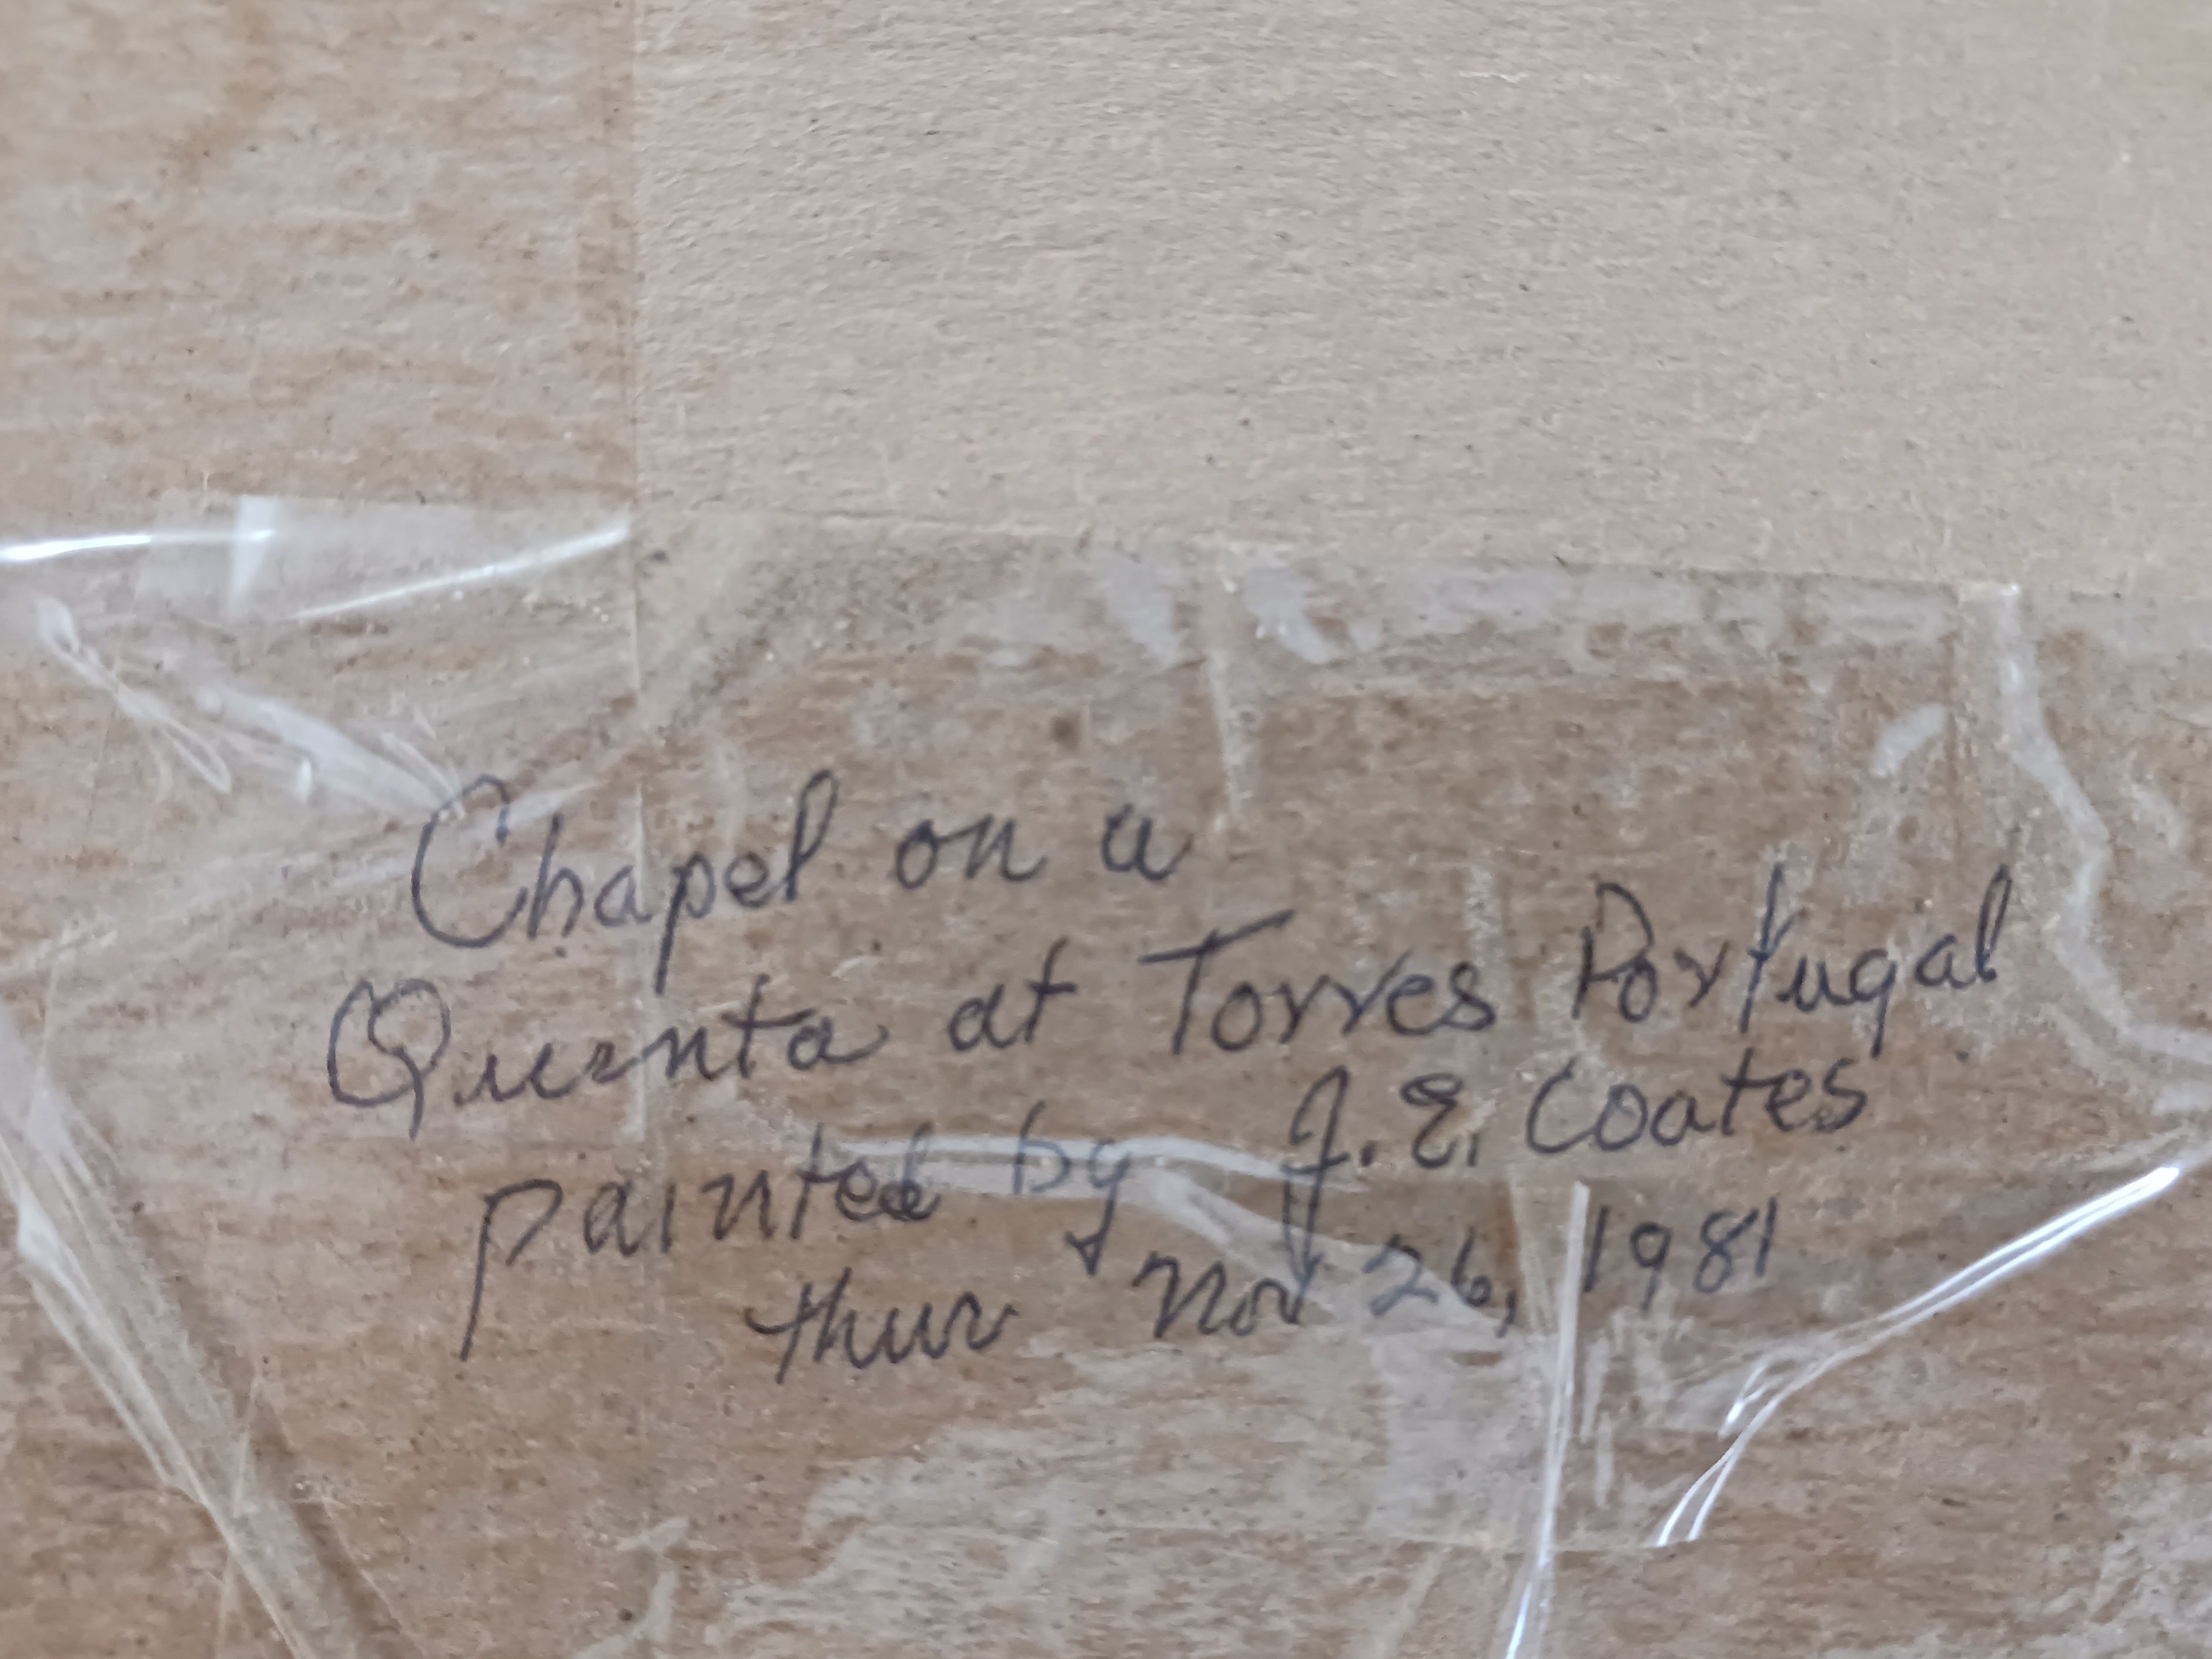 Chapel on a
Quinta at Torres Portugal
painted by J. E. Coates
thur Nov 26, 1981